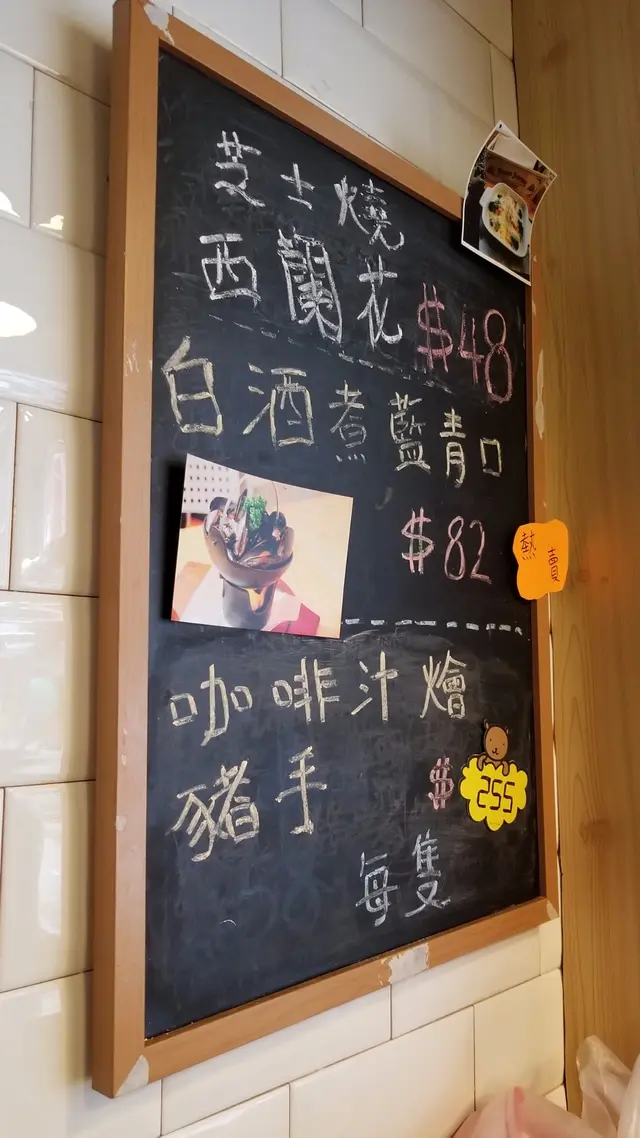 芝士燒
西蘭花 $48
白酒煮藍青口
$82
熱賣
咖啡汁燴
豬手 $255
每隻